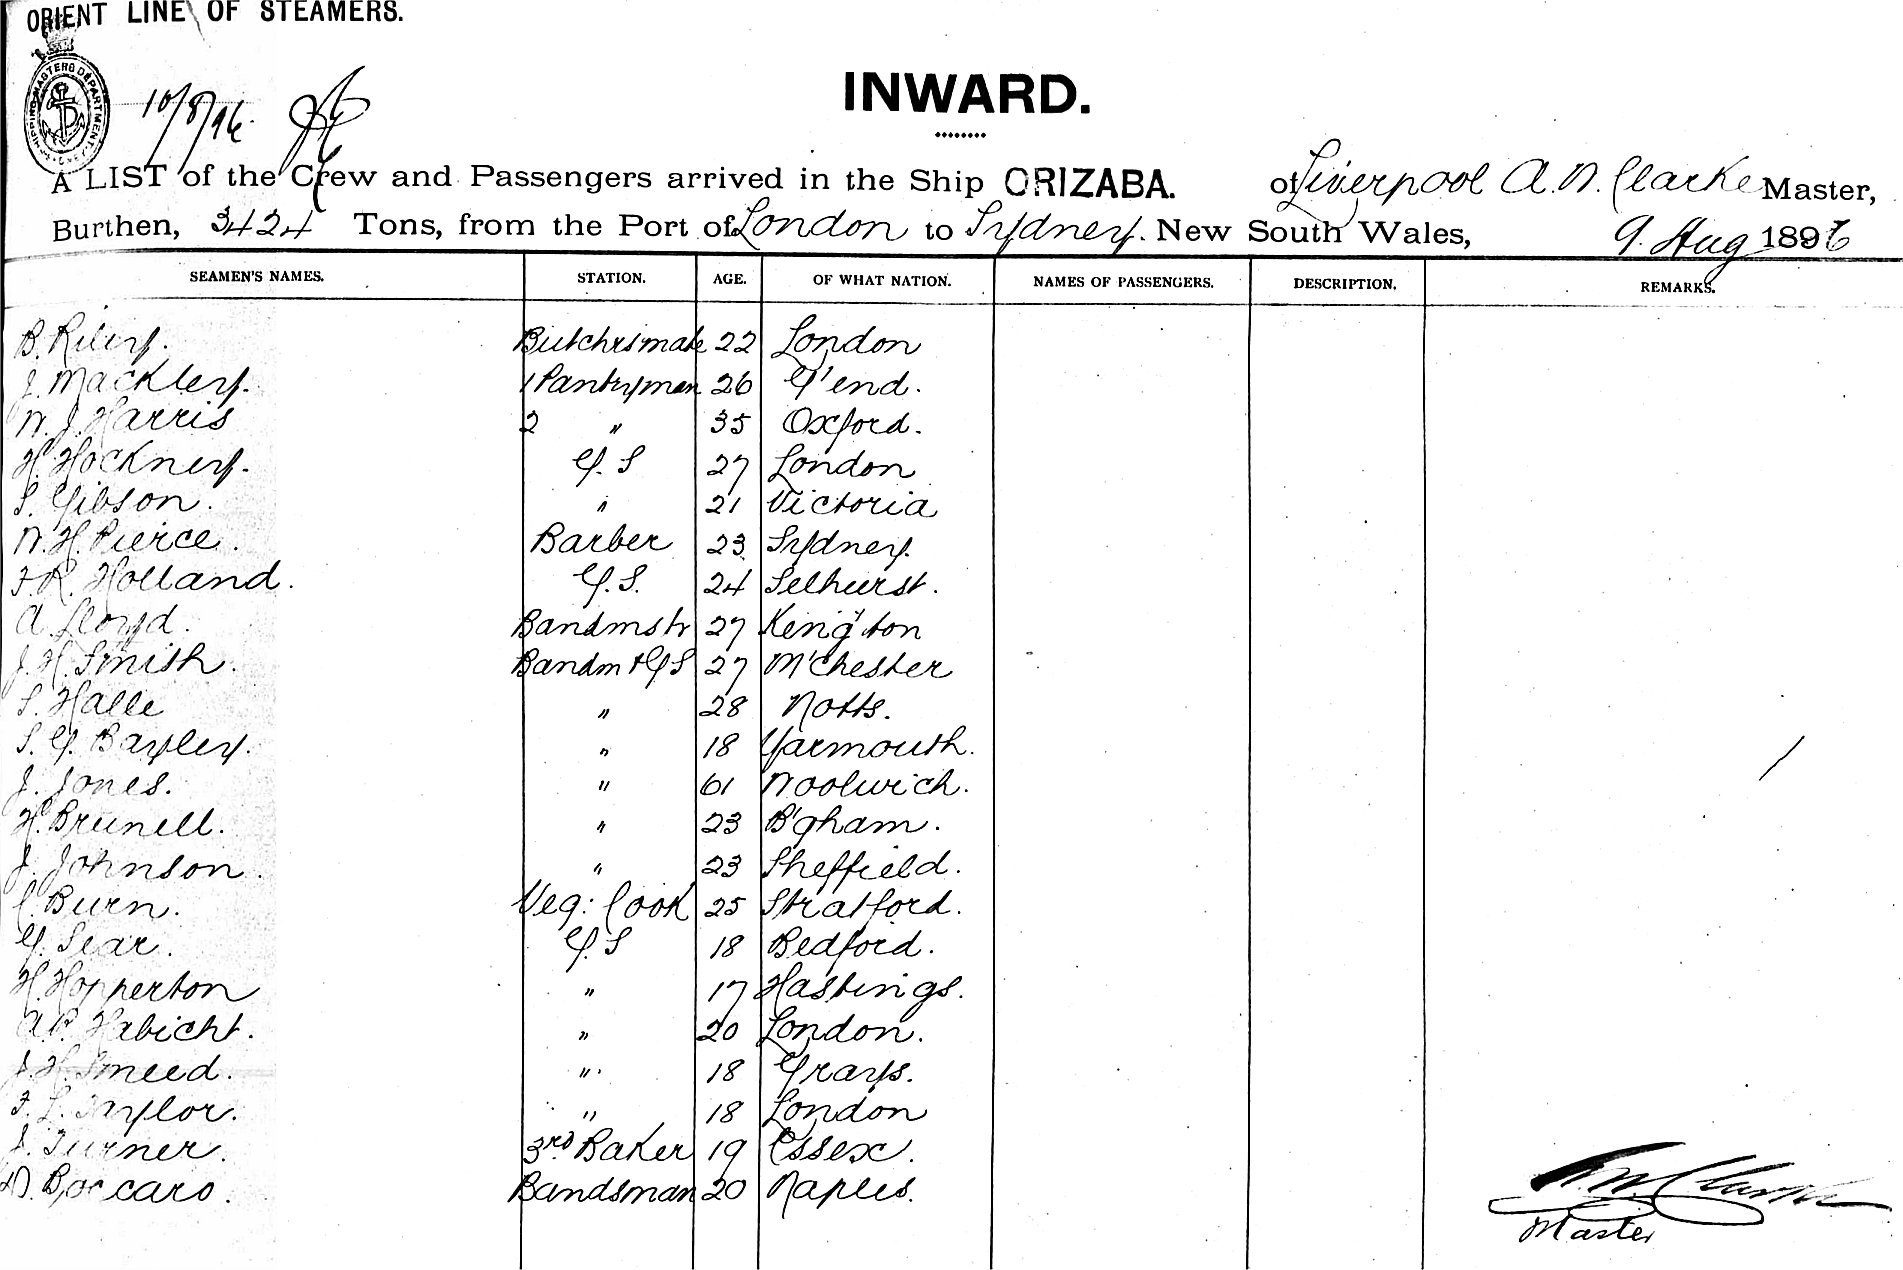 ORIENT LINE OF STEAMERS.
SHIPPING MASTERS DEPARTMENT
10/8/96.
INWARD.
A LIST of the Crew and Passengers arrived in the Ship ORIZABA. of Liverpool A. W. Clarke Master,
Burthen, 3424 Tons, from the Port of London to Sydney. New South Wales, 9. Aug 1896
SEAMEN'S NAMES. STATION. AGE. OF WHAT NATION. NAMES OF PASSENGERS. DESCRIPTION. REMARKS.
B. Riley. Butchrsmate 22 London
J. Mackley. 1 Pantryman 26 G'end.
W. J. Harris 2 " 35 Oxford.
H. Hockney. G. S 27 London
S. Gibson. " 21 Victoria
W. H. Pierce. Barber 23 Sydney.
F. R. Holland. G. S. 24 Selhurst.
A Lloyd. Bandmstr 27 Keng'ton
J. H. Smith. Bandm & G S 27 M'chester
S. Halle " 28 Notts.
S. G. Bayley. " 18 Yarmouth.
J. Jones. " 61 Woolwich.
H. Brunell. " 23 B'gham.
J. Johnson. " 23 Sheffield.
C. Burn. Veg: Cook 25 Stratford.
G. Sear. G. S 18 Bedford.
H. Hopperton " 17 Hastings.
A. P. Habicht. " 20 London.
J. H. Smeed. " 18 Grays.
F. L. Taylor. " 18 London
J. Turner. 3rd Baker 19 Essex.
D. Boccaro. Bandsman 20 Naples.
A. W. Clarke
Master